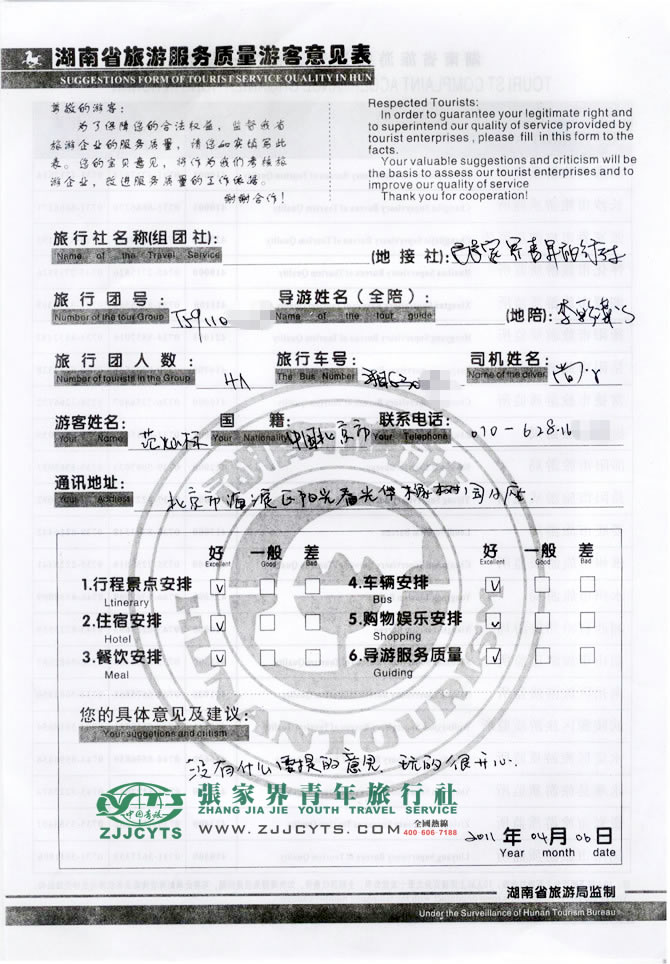 湖南省旅游服务质量游客意见表
SUGGESTIONS FORM OF TOURIST SERVICE QUALITY IN HUN
尊敬的游客：
为了保障您的合法权益，监督我省
旅游企业的服务质量，请您如实填写此
表。您的宝贝意见，将作为我们考核旅
游企业，改进服务质量的工作依据。
谢谢合作！
Respected Tourists:
In order to guarantee your legitimate right and
to superintend our quality of service provided by
tourist enterprises , please fill in this form to the
facts.
Your valuable suggestions and criticism will be
the basis to assess our tourist enterprises and to
improve our quality of service
Thank you for cooperation!
旅行社名称(组团社): (地接社):
Name of the Travel Service
旅行团号 导游姓名（全陪）： (地陪):
Number of the tour Group Name of the tour guide
旅行团人数： 旅行车号： 司机姓名：
Number of tourists in the Group The Bus Number Name of the driver
游客姓名: 国籍: 中国北京市 联系电话: 010-62816
Your Name Your Nationality Your Telephone
通讯地址: 北京市海淀区阳光
Your Address
好 一般 差 好 一般 差
Excellent Good Bad Excellent Good Bad
1.行程景点安排 ☑ □ □ 4.车辆安排 ☑ □ □
Ltinerary Bus
2.住宿安排 ☑ □ □ 5.购物娱乐安排 ☑ □ □
Hotel Shopping
3.餐饮安排 ☑ □ □ 6.导游服务质量 ☑ □ □
Meal Guiding
您的具体意见及建议:
Your suggetions and critism
HUNAN TOURISM
没有什么要提的意见，玩的很开心.
張家界青年旅行社
ZHANG JIA JIE YOUTH TRAVEL SERVICE
ZJJCYTS WWW.ZJJCYTS.COM 全國熱線
400-606-7188
2011 年 04 月 06 日
Year month date
湖南省旅游局监制
Under the Surveillance of Hunan Tourism Bureau